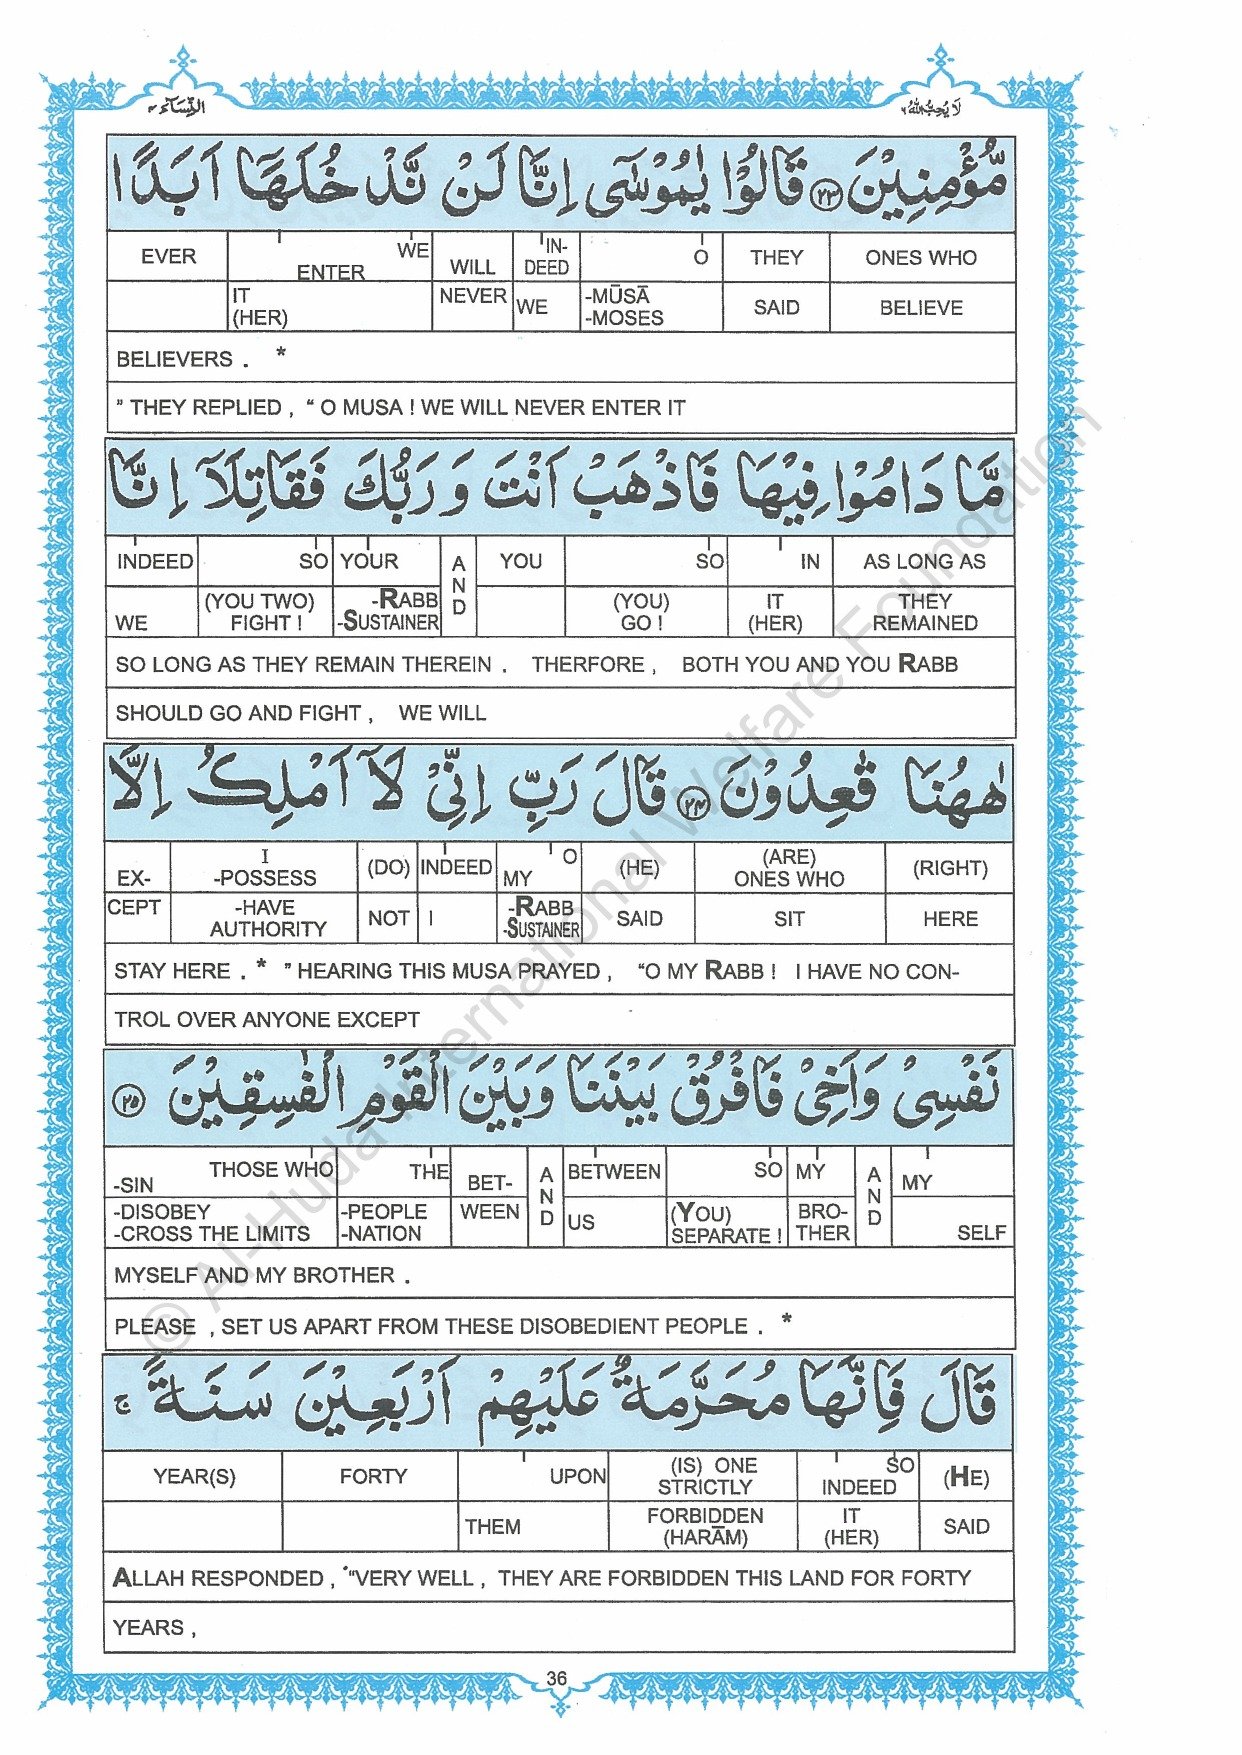 النِّسَآء ٤
لَا يُحِبُّ اللّٰهُ ٦
مُّؤْمِنِيْنَ ﴿٢٣﴾ قَالُوْا يٰمُوْسٰٓى اِنَّا لَنْ نَّدْخُلَهَاۤ اَبَدًا
EVER | WE ENTER | WILL | IN- DEED | O | THEY | ONES WHO
IT (HER) | NEVER | WE | -MŪSĀ -MOSES | SAID | BELIEVE
BELIEVERS . *
” THEY REPLIED , “ O MUSA ! WE WILL NEVER ENTER IT
مَّا دَامُوْا فِيْهَا فَاذْهَبْ اَنْتَ وَ رَبُّكَ فَقَاتِلَآ اِنَّا
INDEED | SO | YOUR | AND | YOU | SO | IN | AS LONG AS
WE | (YOU TWO) FIGHT ! | -RABB -SUSTAINER | (YOU) GO ! | IT (HER) | THEY REMAINED
SO LONG AS THEY REMAIN THEREIN . THERFORE , BOTH YOU AND YOU RABB
SHOULD GO AND FIGHT , WE WILL
هٰهُنَا قٰعِدُوْنَ ﴿٢٤﴾ قَالَ رَبِّ اِنِّيْ لَآ اَمْلِكُ اِلَّا
EX- | I -POSSESS | (DO) | INDEED | O MY | (HE) | (ARE) ONES WHO | (RIGHT)
CEPT | -HAVE AUTHORITY | NOT | I | -RABB -SUSTAINER | SAID | SIT | HERE
STAY HERE . * ” HEARING THIS MUSA PRAYED , “O MY RABB ! I HAVE NO CON-
TROL OVER ANYONE EXCEPT
نَفْسِيْ وَاَخِيْ فَافْرُقْ بَيْنَنَا وَبَيْنَ الْقَوْمِ الْفٰسِقِيْنَ ﴿٢٥﴾
THOSE WHO -SIN | THE | BET- | AND | BETWEEN | SO | MY | AND | MY
-DISOBEY -CROSS THE LIMITS | -PEOPLE -NATION | WEEN | US | (YOU) SEPARATE ! | BRO- THER | SELF
MYSELF AND MY BROTHER .
PLEASE , SET US APART FROM THESE DISOBEDIENT PEOPLE . *
قَالَ فَاِنَّهَا مُحَرَّمَةٌ عَلَيْهِمْ اَرْبَعِيْنَ سَنَةً ۚ
YEAR(S) | FORTY | UPON | (IS) ONE STRICTLY | SO INDEED | (HE)
THEM | FORBIDDEN (HARĀM) | IT (HER) | SAID
ALLAH RESPONDED , "VERY WELL , THEY ARE FORBIDDEN THIS LAND FOR FORTY
YEARS ,
36
© Al-Huda International Welfare Foundation